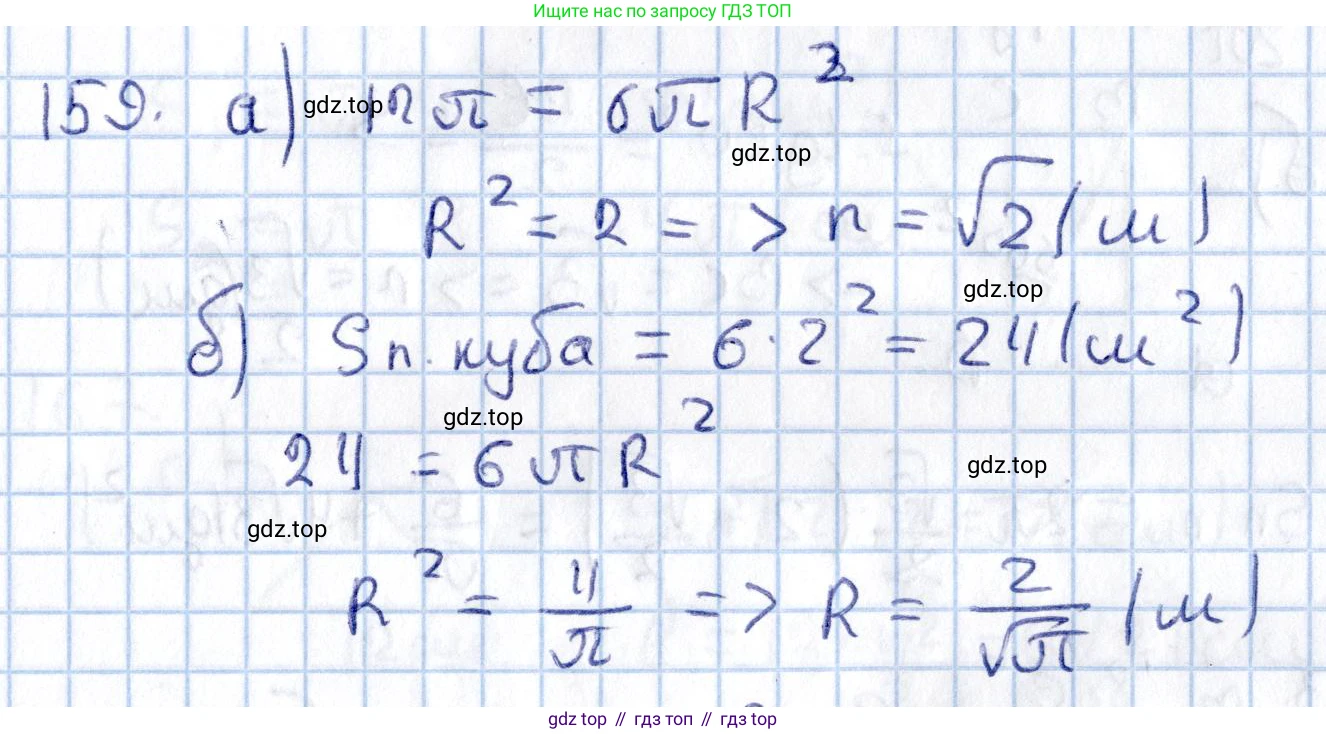 Ищите нас по запросу ГДЗ ТОП
159. а) 12π = 6πR²
gdz.top
gdz.top
R² = 2 => r = √2 (м)
gdz.top
б) Sп. куба = 6·2² = 24 (м²)
gdz.top
24 = 6πR²
gdz.top
gdz.top
R² = 4/π => R = 2/√π (м)
gdz top // гдз топ // гдз top